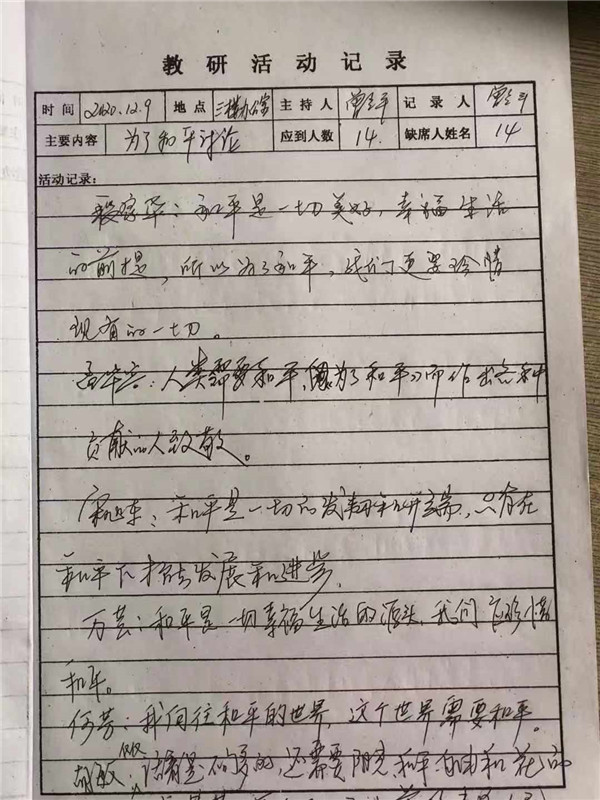 教研活动记录
时间 2020.12.9 地点 三楼办公室 主持人 记录人
主要内容 为了和平讨论 应到人数 14. 缺席人姓名 14
活动记录:
家华：和平是一切美好，幸福生活
的前提，所以为了和平，我们更要珍惜
现有的一切。
孟华：人类都要和平，为了和平而作出各种
贡献的人致敬。
和平是一切的发，只有在
和平下才能发展和进步.
万芸：和平是一切幸福生活的源头，我们应珍惜
和平。
何芳：我向往和平的世界，这个世界需要和平。
胡敏：仅仅是不够的，还需要阳光，和平自由和花的